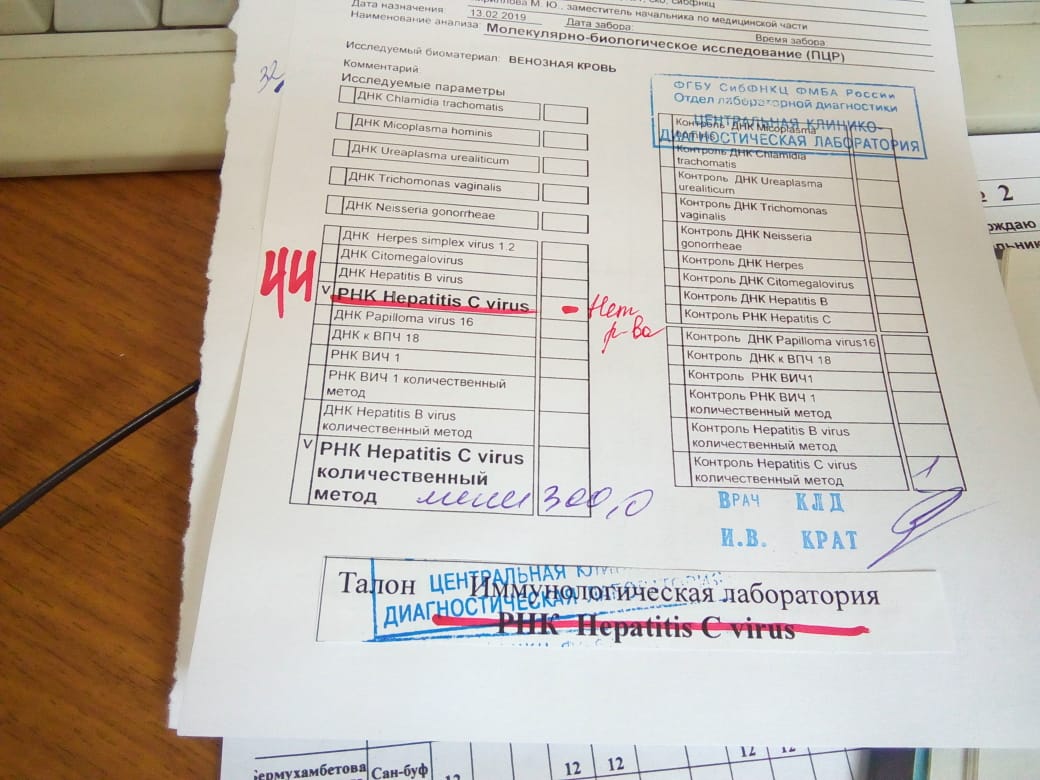 заместитель начальника по медицинской части
Дата назначения: 13.02.2019 Дата забора:
Наименование анализа: Время забора:
Молекулярно-биологическое исследование (ПЦР)
Исследуемый биоматериал: ВЕНОЗНАЯ КРОВЬ
Комментарий:
32
Исследуемые параметры
ФГБУ СибФНКЦ ФМБА России
Отдел лабораторной диагностики
ЦЕНТРАЛЬНАЯ КЛИНИКО-
ДИАГНОСТИЧЕСКАЯ ЛАБОРАТОРИЯ
ДНК Chlamidia trachomatis
ДНК Micoplasma hominis
ДНК Ureaplasma urealiticum
ДНК Trichomonas vaginalis
ДНК Neisseria gonorrheae
ДНК Herpes simplex virus 1.2
ДНК Citomegalovirus
ДНК Hepatitis B virus
44
v РНК Hepatitis C virus - Нет р-ва
ДНК Papilloma virus 16
ДНК к ВПЧ 18
РНК ВИЧ 1
РНК ВИЧ 1 количественный
метод
ДНК Hepatitis B virus
количественный метод
v РНК Hepatitis C virus
количественный
метод 300,0
Контроль ДНК Micoplasma
Контроль ДНК Chlamidia
trachomatis
Контроль ДНК Ureaplasma
urealiticum
Контроль ДНК Trichomonas
vaginalis
Контроль ДНК Neisseria
gonorheae
Контроль ДНК Herpes
Контроль ДНК Citomegalovirus
Контроль ДНК Hepatitis B
Контроль РНК Hepatitis C
Контроль ДНК Papilloma virus16
Контроль ДНК к ВПЧ 18
Контроль РНК ВИЧ1
Контроль РНК ВИЧ 1
количественный метод
Контроль Hepatitis B virus
количественный метод
Контроль Hepatitis C virus
количественный метод
ВРАЧ КЛД
И.В. КРАТ
Талон Иммунологическая лаборатория
РНК Hepatitis C virus
ЦЕНТРАЛЬНАЯ
ДИАГНОСТИЧЕСКАЯ
2
Сан-буф
12 12 12 12 12